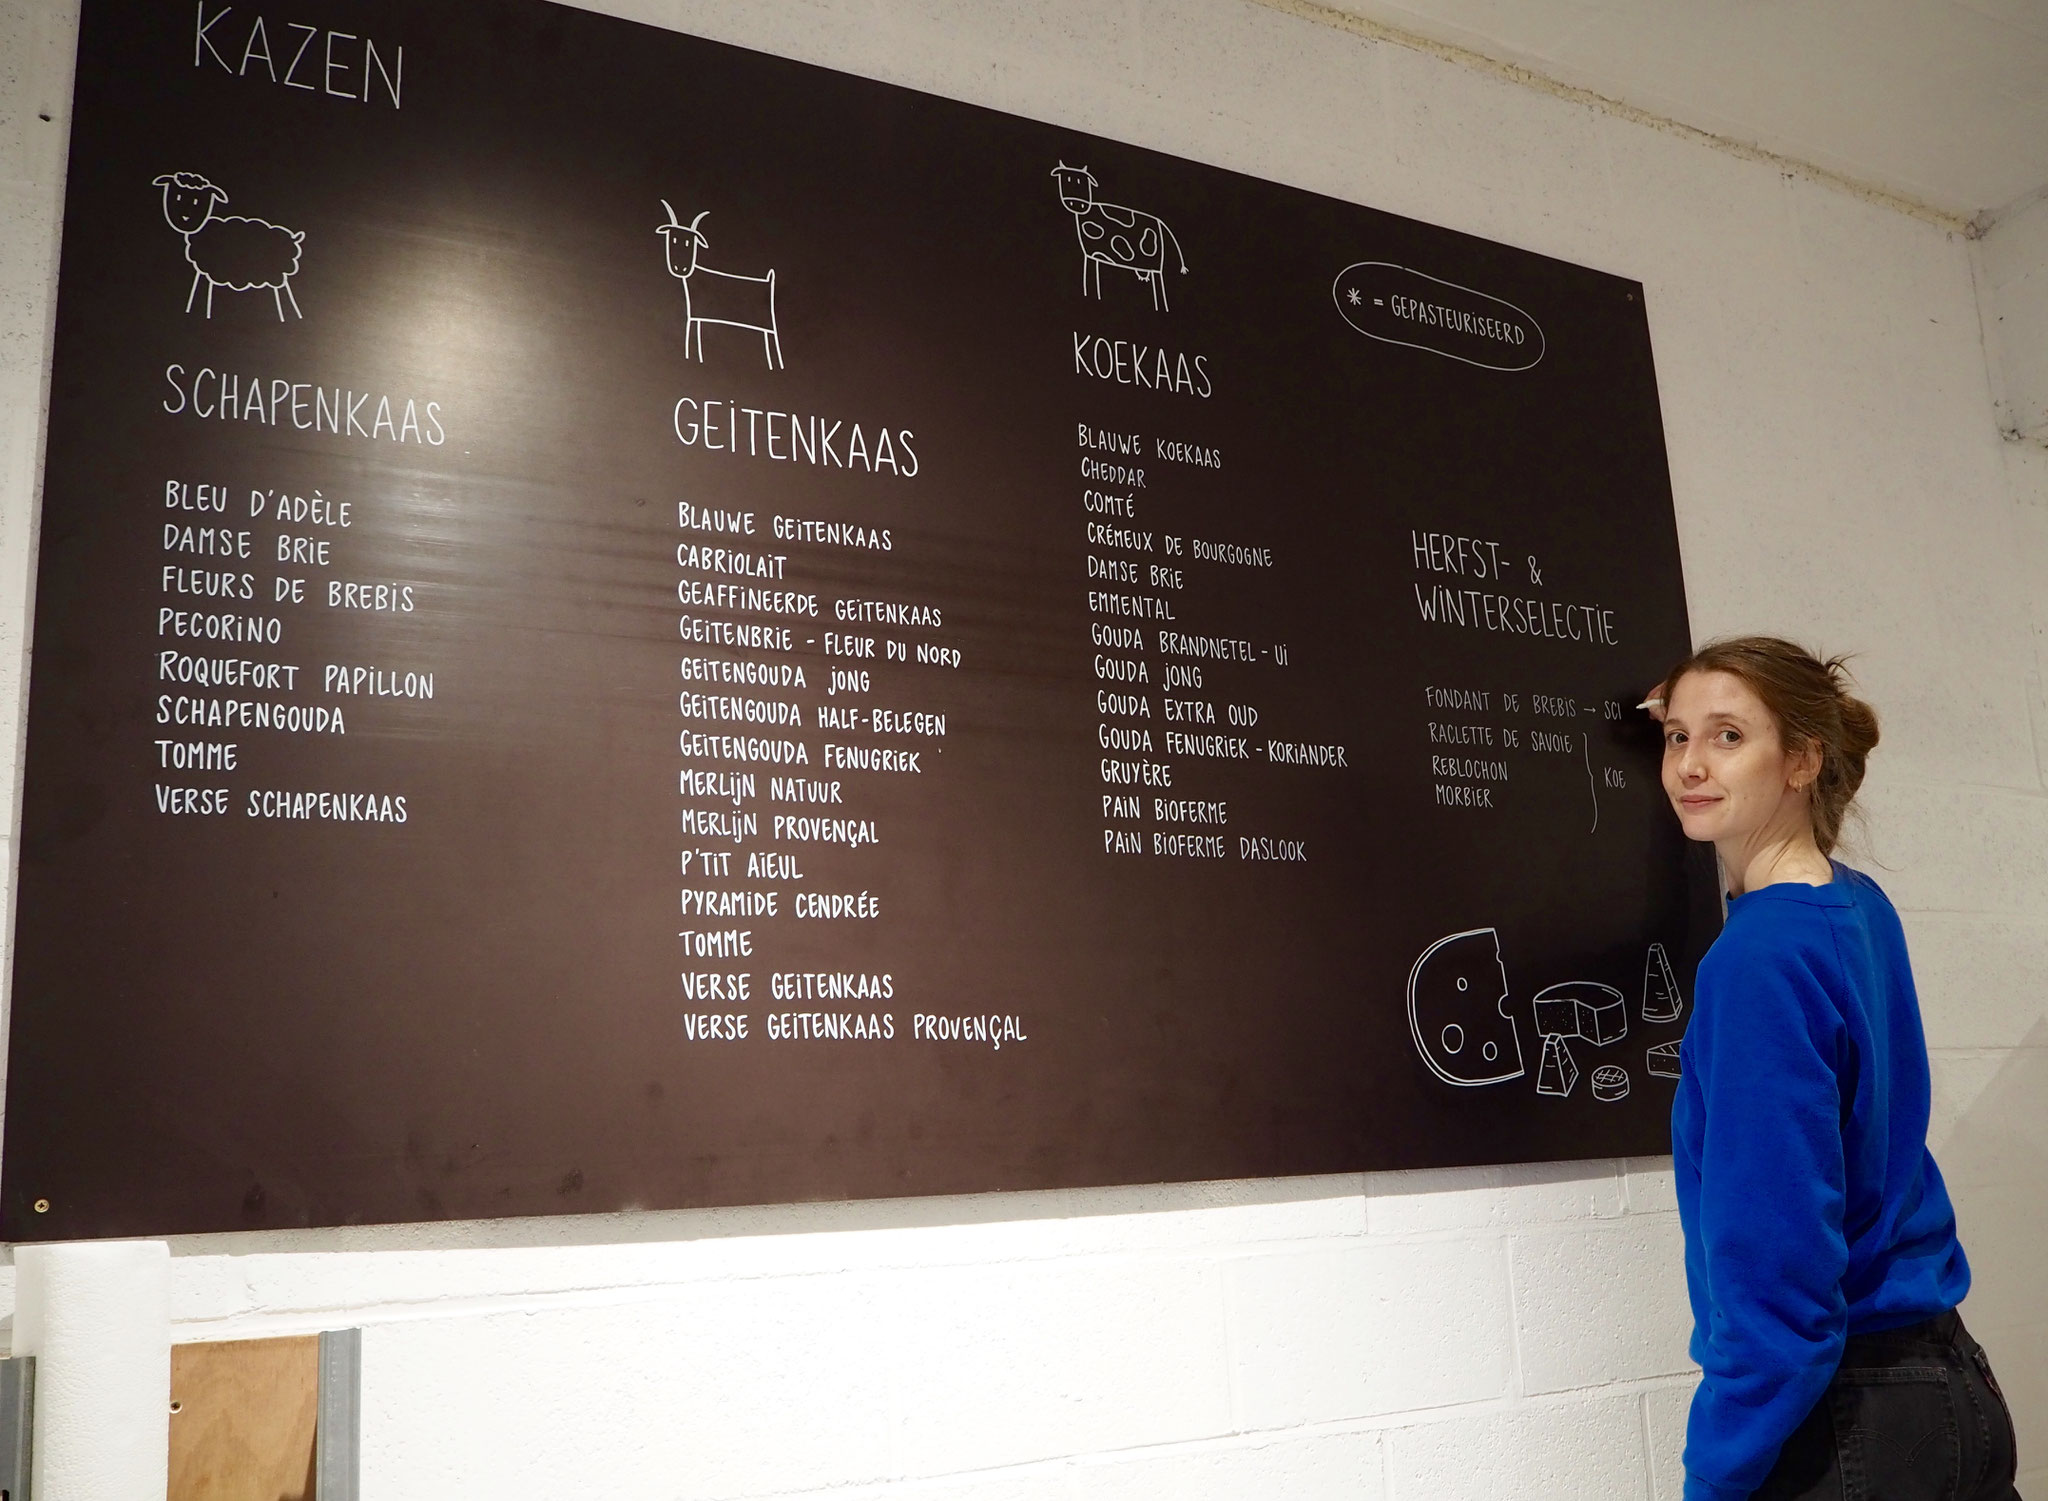 KAZEN
SCHAPENKAAS
BLEU D'ADÈLE
DAMSE BRIE
FLEURS DE BREBIS
PECORINO
ROQUEFORT PAPILLON
SCHAPENGOUDA
TOMME
VERSE SCHAPENKAAS
GEITENKAAS
BLAUWE GEITENKAAS
CABRIOLAIT
GEAFFINEERDE GEITENKAAS
GEITENBRIE - FLEUR DU NORD
GEITENGOUDA JONG
GEITENGOUDA HALF-BELEGEN
GEITENGOUDA FENUGRIEK
MERLIJN NATUUR
MERLIJN PROVENÇAL
P'TIT AÏEUL
PYRAMIDE CENDRÉE
TOMME
VERSE GEITENKAAS
VERSE GEITENKAAS PROVENÇAL
KOEKAAS
BLAUWE KOEKAAS
CHEDDAR
COMTÉ
CRÉMEUX DE BOURGOGNE
DAMSE BRIE
EMMENTAL
GOUDA BRANDNETEL - UI
GOUDA JONG
GOUDA EXTRA OUD
GOUDA FENUGRIEK - KORIANDER
GRUYÈRE
PAIN BIOFERME
PAIN BIOFERME DASLOOK
* = GEPASTEURISEERD
HERFST- &
WINTERSELECTIE
FONDANT DE BREBIS → SC
RACLETTE DE SAVOIE
REBLOCHON
MORBIER
KOE